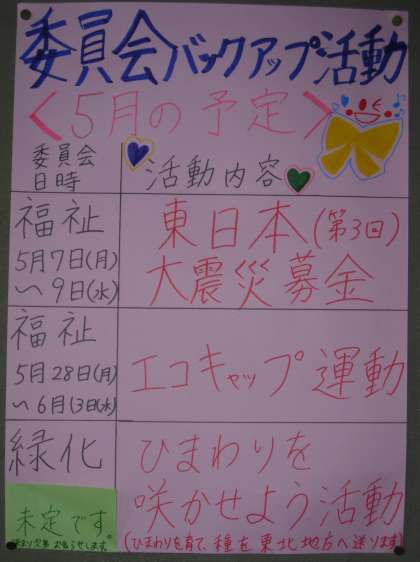 委員会バックアップ活動
<5月の予定>
委員会
日時
活動内容
福祉
5月7日(月)
〜9日(水)
東日本(第3回)
大震災募金
福祉
5月28日(月)
〜6月(3日水)
エコキャップ運動
緑化
未定です。
決まり次第お知らせします。
ひまわりを
咲かせよう活動
(ひまわりを育て、種を東北地方へ送ります)